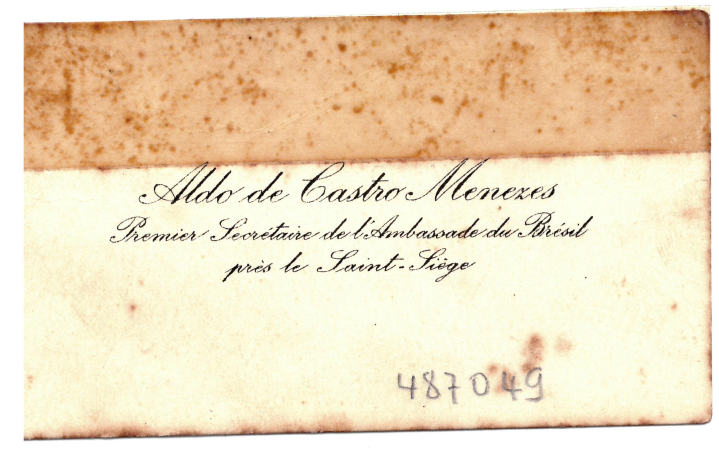 Aldo de Castro Menezes
Premier Secrétaire de l'Ambassade du Brésil
près le Saint-Siège
487049